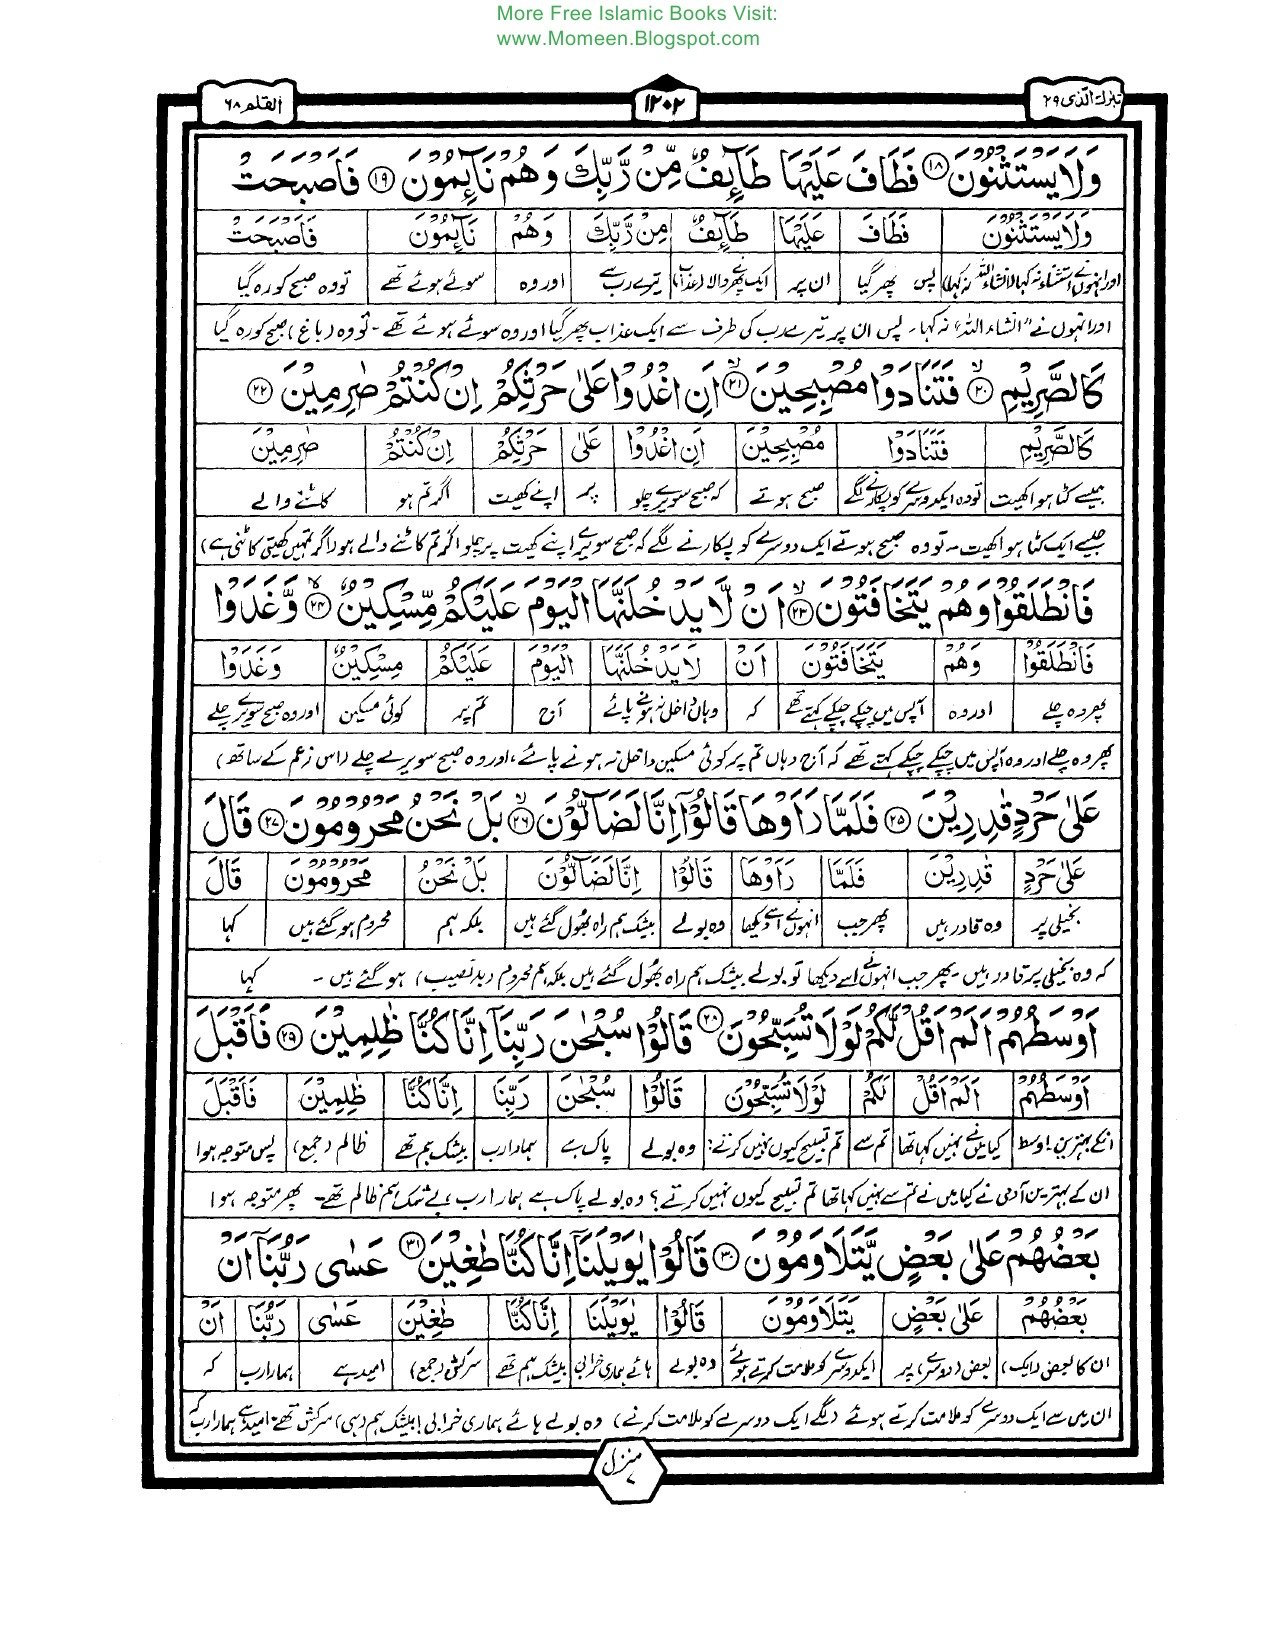 More Free Islamic Books Visit:
www.Momeen.Blogspot.com
تبٰرك الّذی ۲۹
۱۲۰۲
القلم ۶۸
وَلَا يَسْتَثْنُوْنَ ⑱ فَطَافَ عَلَيْهَا طَآئِفٌ مِّنْ رَّبِّكَ وَهُمْ نَآئِمُوْنَ ⑲ فَاَصْبَحَتْ
وَلَا يَسْتَثْنُوْنَ فَطَافَ عَلَيْهَا طَآئِفٌ مِنْ رَّبِّكَ وَهُمْ نَآئِمُوْنَ فَاَصْبَحَتْ
اور انہوں نے استثناء نہ کہا (انشاء اللہ نہ کہا) پس پھر گیا ان پر ایک پھرنے والا (عذاب) تیرے رب سے اور وہ سوئے ہوئے تھے تو وہ صبح کو رہ گیا
اور انہوں نے "انشاء اللہ" نہ کہا۔ پس ان پر تیرے رب کی طرف سے ایک عذاب پھر گیا اور وہ سوئے ہوئے تھے۔ تو وہ (باغ) صبح کو رہ گیا
كَالصَّرِيْمِ ⑳ فَتَنَادَوْا مُصْبِحِيْنَ ㉑ اَنِ اغْدُوْا عَلٰى حَرْثِكُمْ اِنْ كُنْتُمْ صٰرِمِيْنَ ㉒
كَالصَّرِيْمِ فَتَنَادَوْا مُصْبِحِيْنَ اَنِ اغْدُوْا عَلٰى حَرْثِكُمْ اِنْ كُنْتُمْ صٰرِمِيْنَ
جیسے کٹا ہوا کھیت تو وہ ایک دوسرے کو پکارنے لگے صبح ہوتے کہ صبح سویرے چلو پر اپنے کھیت اگر تم ہو کاٹنے والے
جیسے ایک کٹا ہوا کھیت۔ تو وہ صبح ہوتے ایک دوسرے کو پکارنے لگے کہ صبح سویرے اپنے کھیت پر چلو اگر تم کاٹنے والے ہو (اگر تمہیں کھیتی کاٹنی ہے)
فَانْطَلَقُوْا وَهُمْ يَتَخَافَتُوْنَ ㉓ اَنْ لَّا يَدْخُلَنَّهَا الْيَوْمَ عَلَيْكُمْ مِّسْكِيْنٌ ㉔ وَّغَدَوْا
فَانْطَلَقُوْا وَهُمْ يَتَخَافَتُوْنَ اَنْ لَا يَدْخُلَنَّهَا الْيَوْمَ عَلَيْكُمْ مِسْكِيْنٌ وَغَدَوْا
پھر وہ چلے اور وہ آپس میں چپکے چپکے کہتے تھے کہ وہاں داخل نہ ہونے پائے آج تم پر کوئی مسکین اور وہ صبح سویرے چلے
پھر وہ چلے اور وہ آپس میں چپکے چپکے کہتے تھے کہ آج وہاں تم پر کوئی مسکین داخل نہ ہونے پائے، اور وہ صبح سویرے چلے (اس زعم کے ساتھ)
عَلٰى حَرْدٍ قٰدِرِيْنَ ㉕ فَلَمَّا رَاَوْهَا قَالُوْٓا اِنَّا لَضَآلُّوْنَ ㉖ بَلْ نَحْنُ مَحْرُوْمُوْنَ ㉗ قَالَ
عَلٰى حَرْدٍ قٰدِرِيْنَ فَلَمَّا رَاَوْهَا قَالُوْا اِنَّا لَضَآلُّوْنَ بَلْ نَحْنُ مَحْرُوْمُوْنَ قَالَ
بخیلی پر وہ قادر ہیں پھر جب انہوں نے اسے دیکھا وہ بولے بیشک ہم راہ بھول گئے ہیں بلکہ ہم محروم ہو گئے ہیں کہا
کہ وہ بخیلی پر قادر ہیں۔ پھر جب انہوں نے اسے دیکھا تو بولے بیشک ہم راہ بھول گئے ہیں بلکہ ہم محروم (بدنصیب) ہو گئے ہیں۔ کہا
اَوْسَطُهُمْ اَلَمْ اَقُلْ لَّكُمْ لَوْلَا تُسَبِّحُوْنَ ㉘ قَالُوْا سُبْحٰنَ رَبِّنَآ اِنَّا كُنَّا ظٰلِمِيْنَ ㉙ فَاَقْبَلَ
اَوْسَطُهُمْ اَلَمْ اَقُلْ لَكُمْ لَوْلَا تُسَبِّحُوْنَ قَالُوْا سُبْحٰنَ رَبِّنَا اِنَّا كُنَّا ظٰلِمِيْنَ فَاَقْبَلَ
انکے بہترین، اوسط کیا میں نے نہیں کہا تھا تم سے تم تسبیح کیوں نہیں کرتے؟ وہ بولے پاک ہے ہمارا رب بیشک ہم تھے ظالم (جمع) پس متوجہ ہوا
ان کے بہترین آدمی نے کیا میں نے تم سے نہیں کہا تھا تم تسبیح کیوں نہیں کرتے؟ وہ بولے پاک ہے ہمارا رب، بے شک ہم ظالم تھے۔ پھر متوجہ ہوا
بَعْضُهُمْ عَلٰى بَعْضٍ يَّتَلَاوَمُوْنَ ㉚ قَالُوْا يٰوَيْلَنَآ اِنَّا كُنَّا طٰغِيْنَ ㉛ عَسٰى رَبُّنَآ اَنْ
بَعْضُهُمْ عَلٰى بَعْضٍ يَتَلَاوَمُوْنَ قَالُوْا يٰوَيْلَنَا اِنَّا كُنَّا طٰغِيْنَ عَسٰى رَبُّنَا اَنْ
ان کا بعض (ایک) بعض (دوسرے) پر ایکدوسرے کو ملامت کرتے ہوئے وہ بولے ہائے ہماری خرابی بیشک ہم تھے سرکش (جمع) امید ہے ہمارا رب کہ
ان میں سے ایک دوسرے کو ملامت کرتے ہوئے (لگے ایک دوسرے کو ملامت کرنے) وہ بولے ہائے ہماری خرابی! بیشک ہم (ہی) سرکش تھے، امید ہے ہمارا رب کہ
منزل ۷